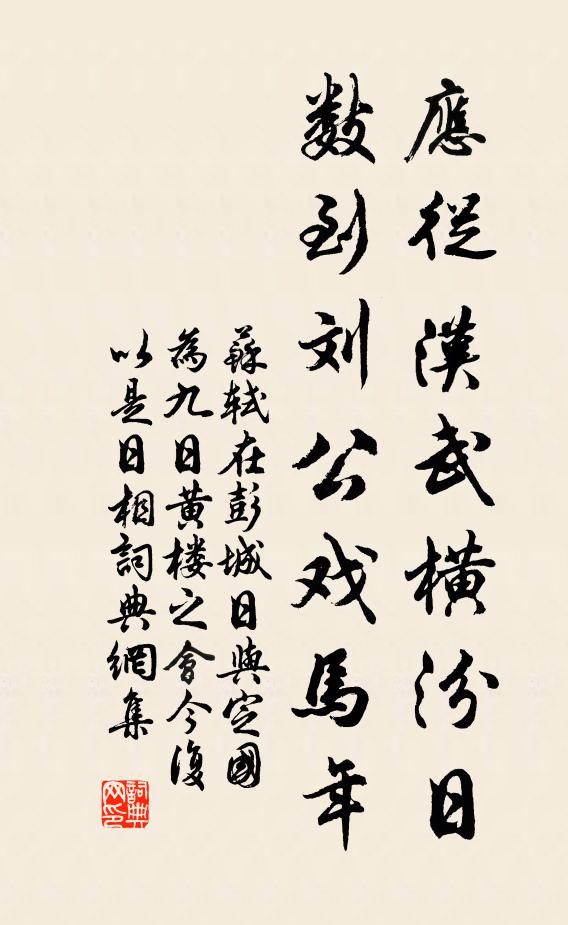 應從漢武橫汾日
数到刘公戏馬年
蘇軾在彭城日與定國
為九日黄楼之會今復
以是日相詞典網集
詞典
网印